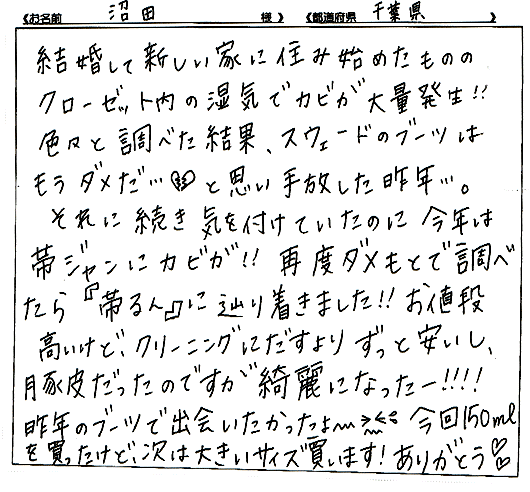 《お名前 沼田 様》 《都道府県 千葉県 》
結婚して新しい家に住み始めたものの
クローゼット内の湿気でカビが大量発生!!
色々と調べた結果、スウェードのブーツは
もうダメだ…💔と思い手放した昨年…。
それに続き気を付けていたのに今年は
革ジャンにカビが!! 再度ダメもとで調べ
たら『革るん』に辿り着きました!! お値段
高いけど、クリーニングにだすよりずっと安いし、
豚皮だったのですが綺麗になったー!!!!
昨年のブーツで出会いたかったよ〜><。 今回150ml
を買ったけど、次は大きいサイズ買います! ありがとう♡♡